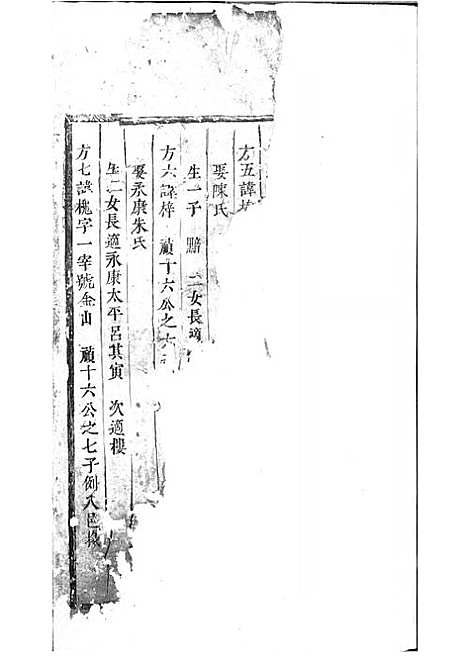 方五諱
娶陳氏
生一子 賠 二女長適
方六諱梓 禎十六公之六
娶永康朱氏
生二女長適永康太平呂其寅 次適樓
方七諱槐字一宰號金山 禎十六公之七子例入邑